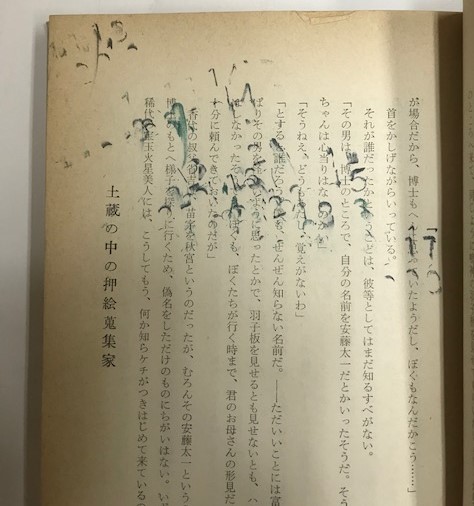 が場合だから、博士もへ いたようだし、ぼくもなんだかこう……」
首をかしげながらいっている。
それが誰だったかという ことは、彼等としてはまだ知るすべがない。
「その男は、博士のところで、自分の名前を安藤太一だとかいったそうだ。そう
ちゃんは心当りはな
「そうねえ。どうも 覚えがないわ」
「とすると誰だろ も、ぜんぜん知らない名前だ。――ただいいことには富
ぱりその男を ように思ったとかで、羽子板を見せるとも見せないとも、ハ
しなかったそ も、ぼくたちが行く時まで、君のお母さんの形見だ
十分に頼んできておいたのだが」
香代の叔 苗字を秋宮というのだったが、むろんその安藤太一という
博 のもとへ様子を 行くため、偽名をしただけのものにちがいはない。い
稀代 玉火星美人には、こうしてもう、何か知らケチがつきはじめて来ている
土蔵の中の押絵蒐集家